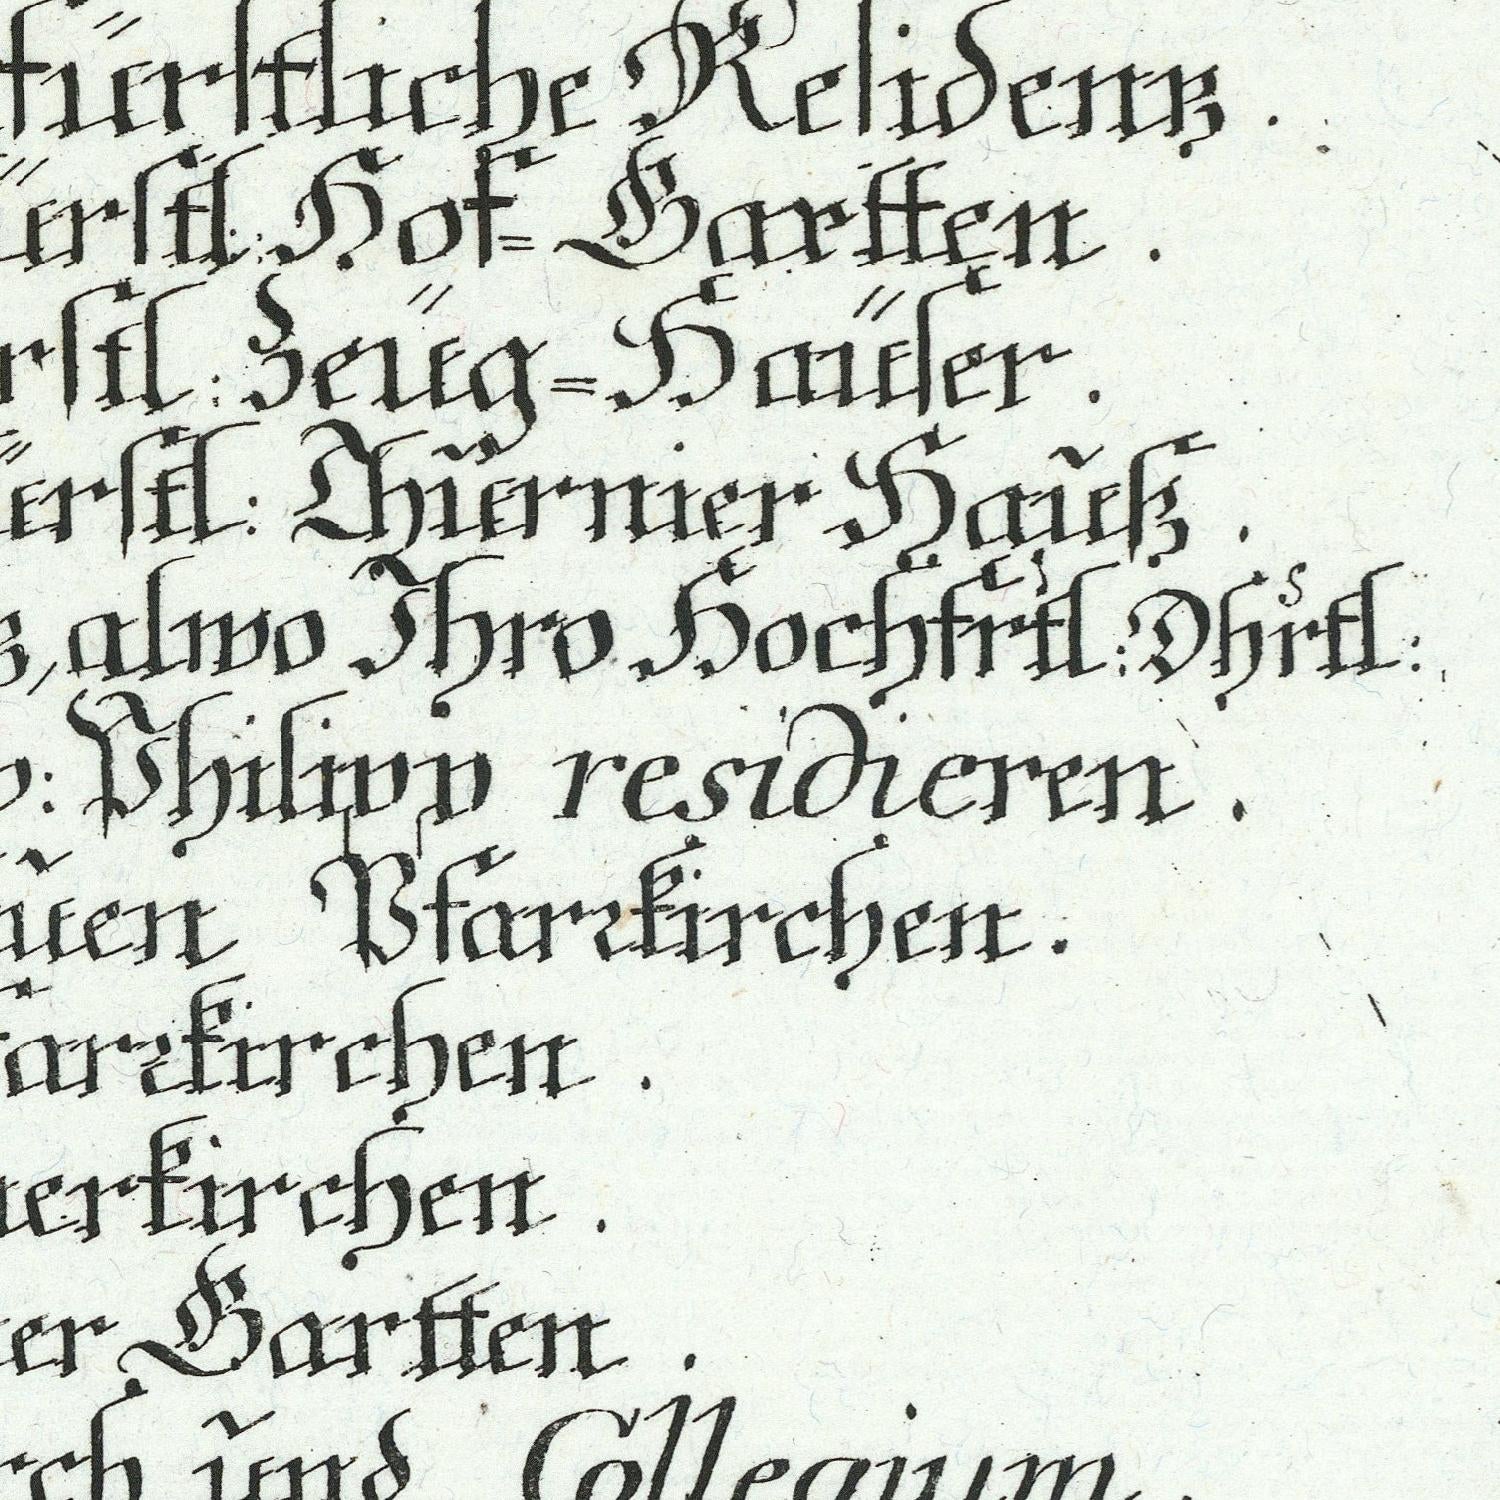 fürstliche Residentz.
ürstl: Hof= Gartten.
rstl: Zeüg=Haüser.
ürstl: Thürnier Hauß.
ß, alwo Ihro Hochfrtl: Dhrtl:
p: Philipp residieren.
auen Pfarrkirchen.
farrkirchen.
erkirchen.
er Gartten.
rch und Collegium.